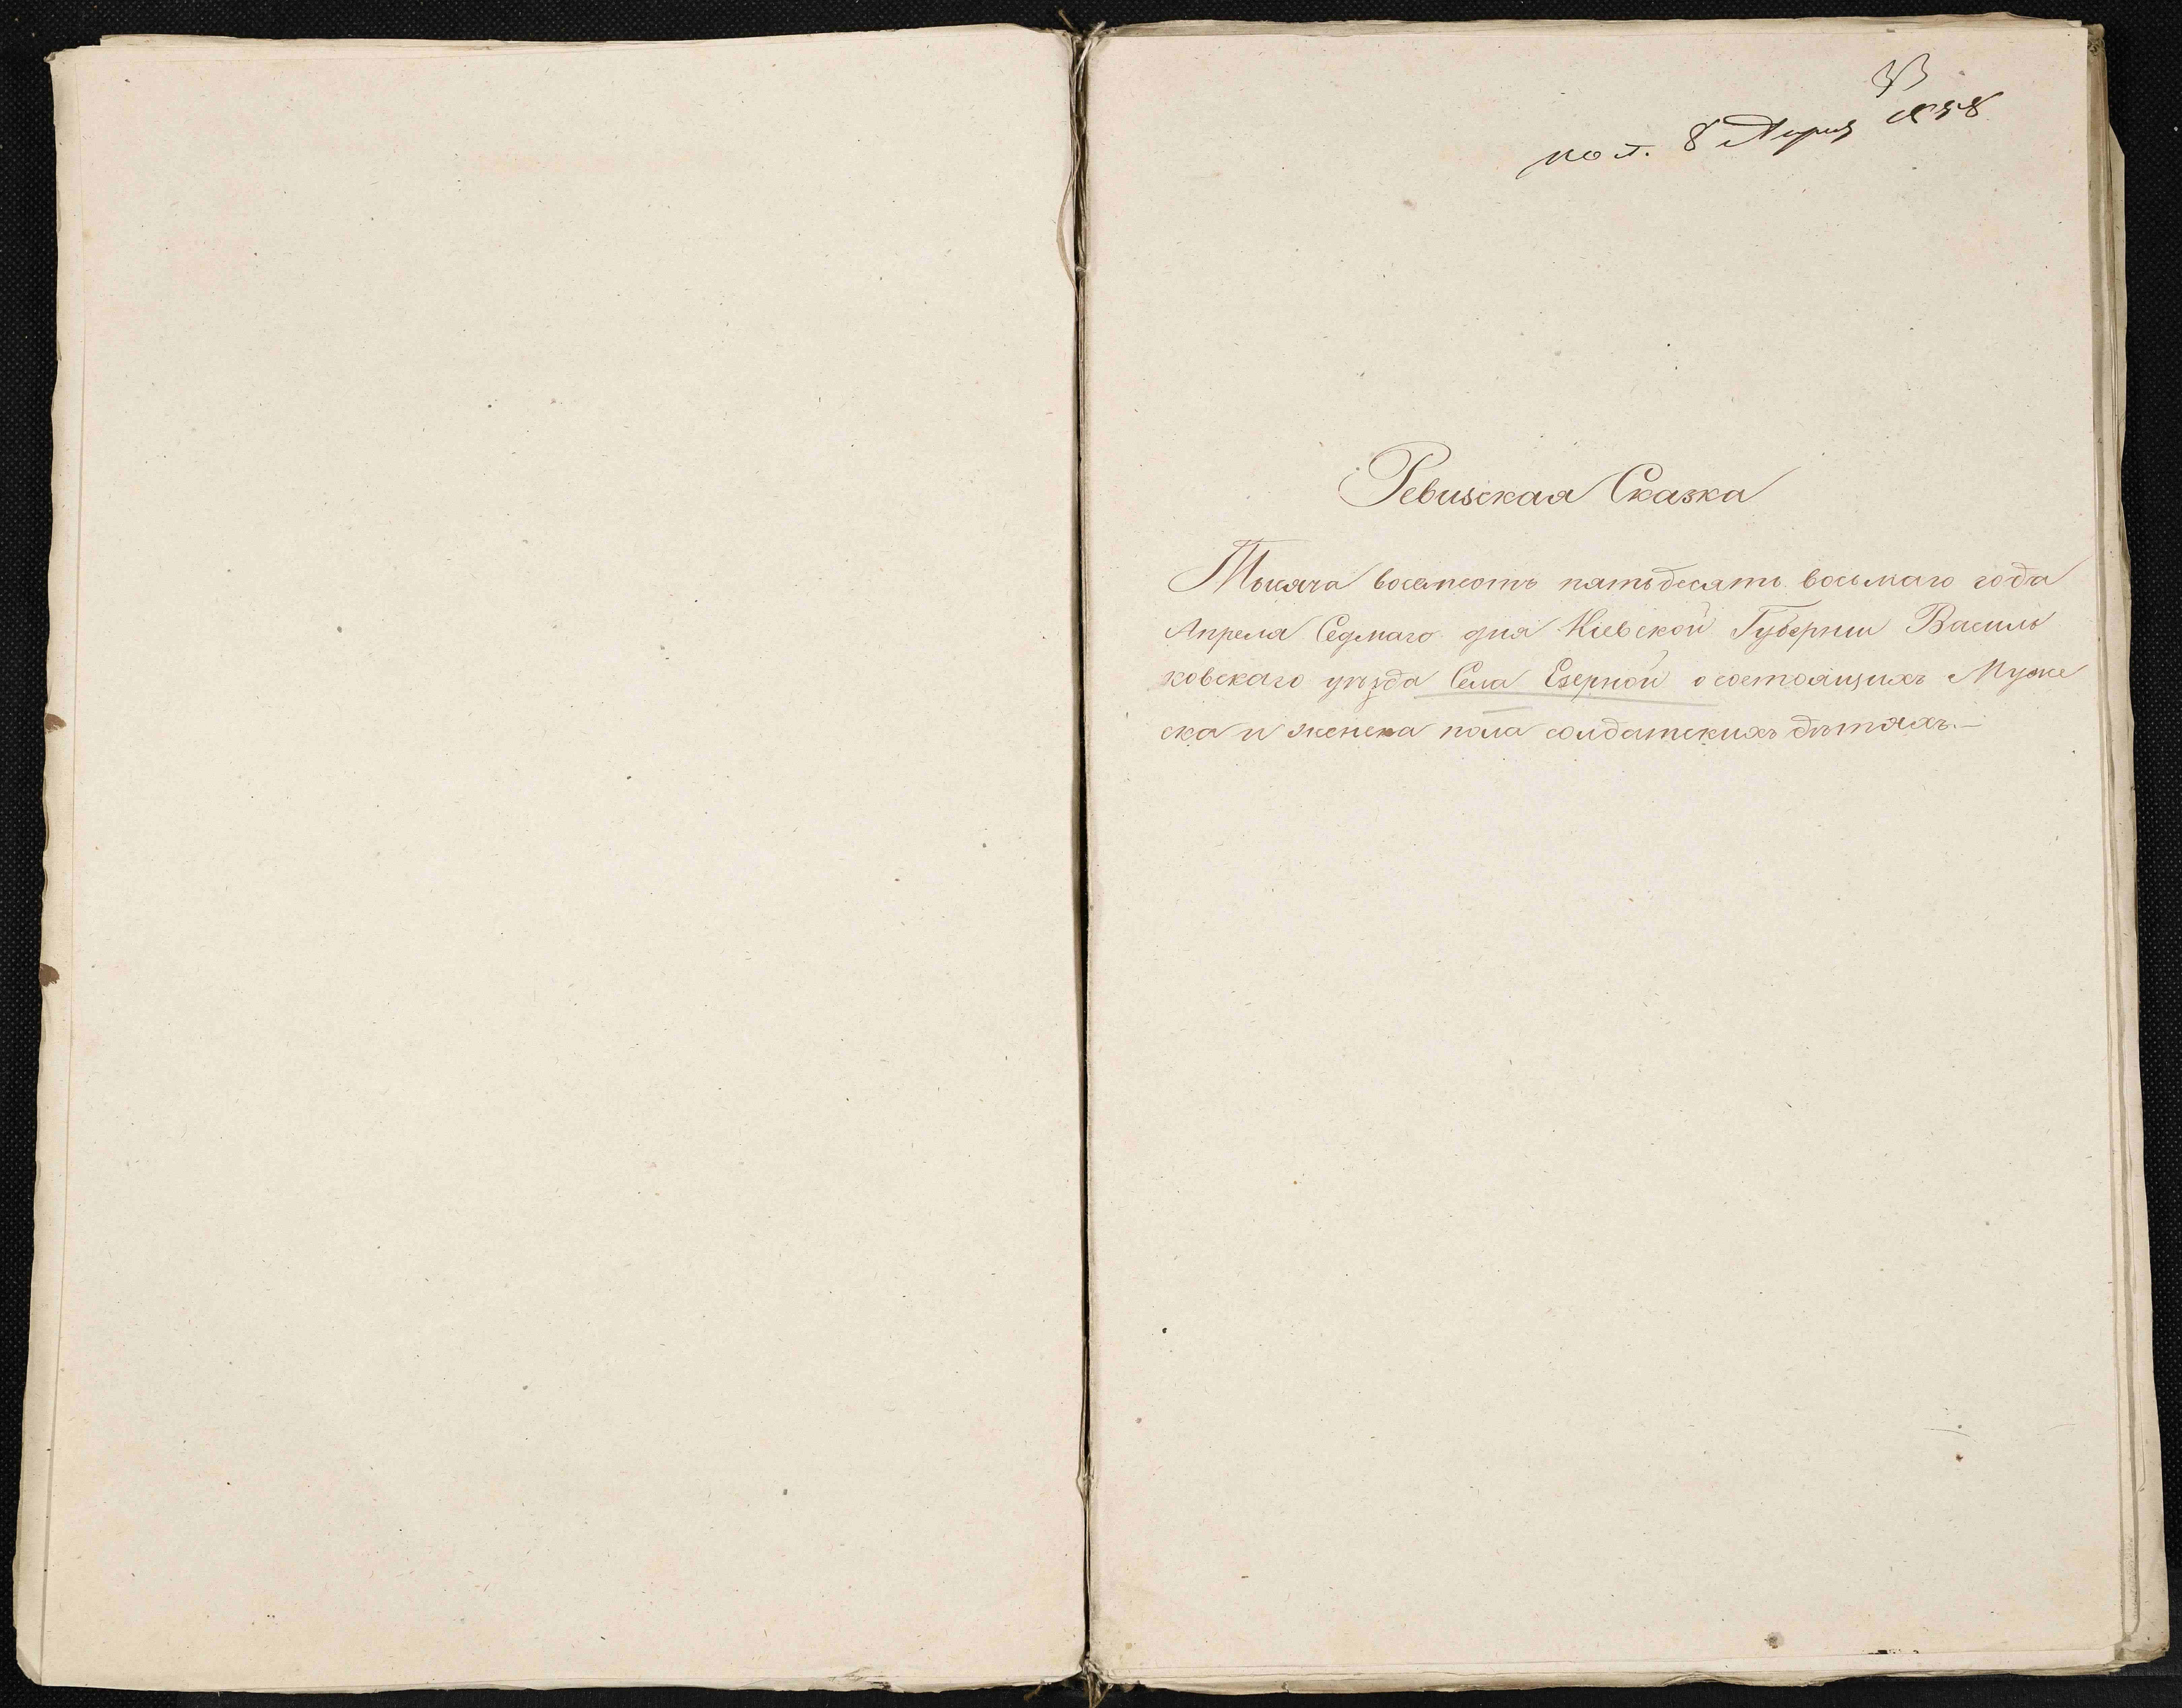 33
пол. 8 Апреля 1858
Ревизская Сказка
Тысяча восемсотъ пятьдесятъ восьмаго года
Апреля Седмаго дня Кіевской Губерніи Василь
ковскаго уѣзда Села Езерной о состоящихъ Муже
ска и женска пола солдатскихъ дѣтяхъ.—